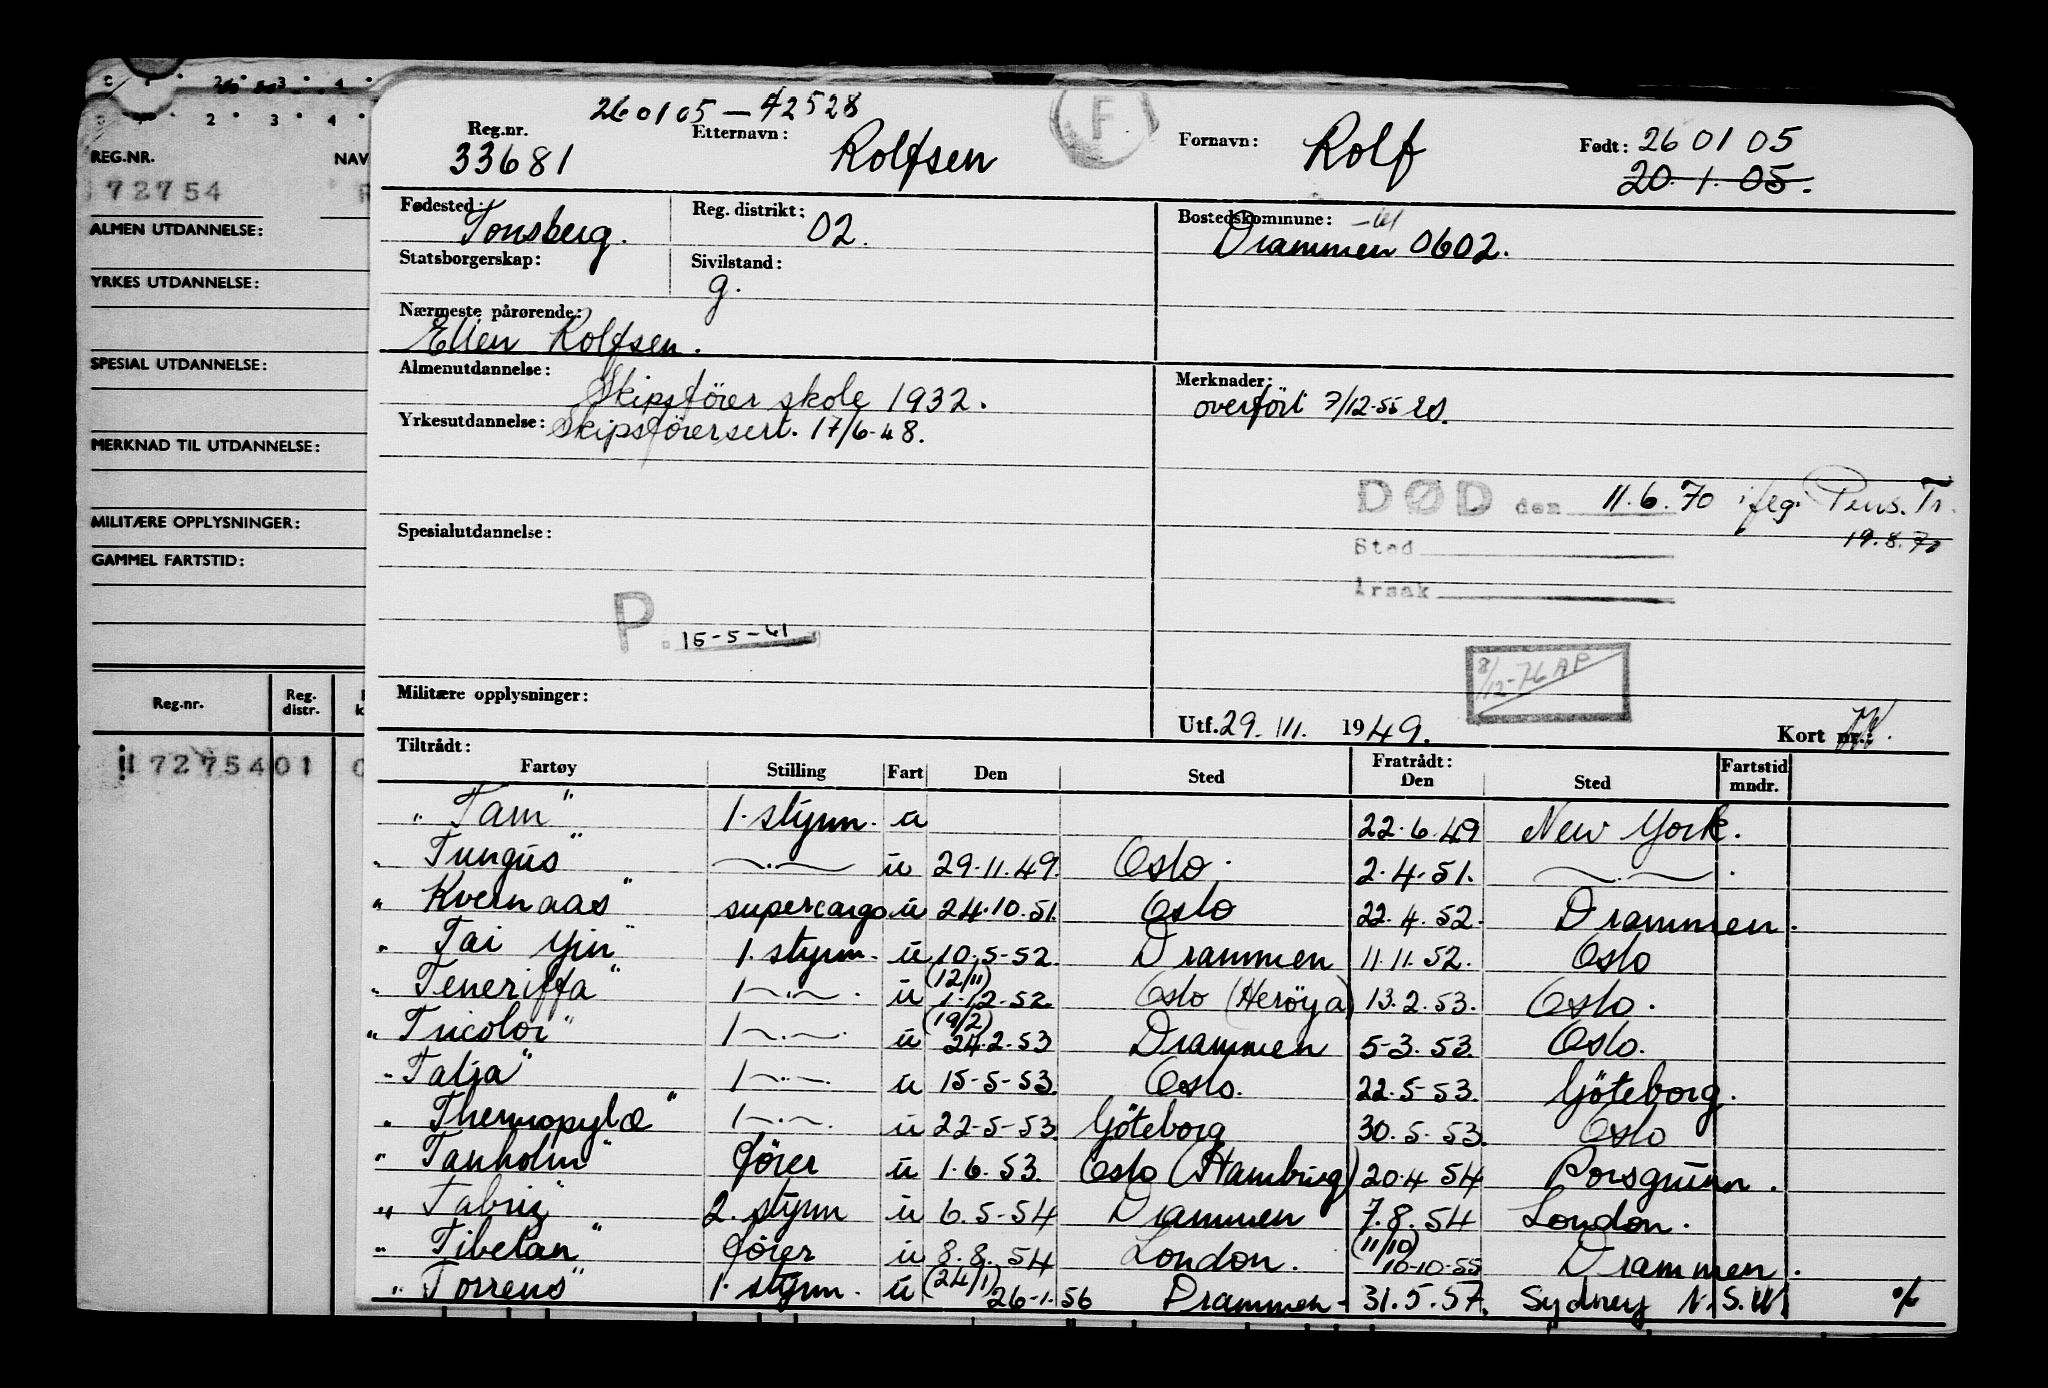 260105-42528
Reg.nr. 33681
Etternavn: Rolfsen
F
Fornavn: Rolf
Født: 26 01 05
20. 1. 05.
Fødested: Tønsberg.
Reg. distrikt: 02.
Bostedskommune: Drammen 0602.
Statsborgerskap:
Sivilstand: g.
Nærmeste pårørende: Ellen Rolfsen.
Almenutdannelse: Skipsfører skole 1932.
Merknader: overført 7/12-55
Yrkesutdannelse: Skipsførersert. 17/6-48.
DØD den 11.6.70 iflg. Pens. Tr.
19.8.70
Sted
Årsak
Spesialutdannelse:
P. 15-5-61
8/12-76 AP
Militære opplysninger:
Utf. 29. III. 1949.
Kort nr.:
Tiltrådt: Fratrådt:
Fartøy Stilling Fart Den Sted Den Sted Fartstid mndr.
"Tam" 1. styrm. u 22.6.49 New York.
"Tungus" —.— u 29.11.49. Oslo. 2.4.51. —.— .
"Kvernaas" supercargo u 24.10.51. Oslo 22.4.52. Drammen.
"Tai Yin" 1. styrm. u 10.5-52. Drammen 11.11.52. Oslo
"Teneriffa" 1 —.— . u (12/11) 1.12-52. Oslo (Herøya) 13.2.53. Oslo.
"Tricolor" 1 —.— . u (19/2) 24.2.53 Drammen 5-3.53. Oslo.
"Talja" 1 —.— . u 15-5-53. Oslo. 22.5-53. Göteborg.
"Thermopylæ" 1 —.— . u 22-5-53. Göteborg 30.5.53. Oslo
"Tanholm" fører u 1.6.53. Oslo (Hamburg) 20.4 54 Porsgrunn.
"Tabriz" 2. styrm u 6.5-54 Drammen 7.8.54 London.
"Tibetan" fører u 8.8.54 London. (11/10) 10-10-55 Drammen.
"Torrens" 1. styrm. u (24/1) 26-1.56 Drammen- 31.5.57. Sydney N.S.W. %
REG.NR. NAV
72754 R
ALMEN UTDANNELSE:
YRKES UTDANNELSE:
SPESIAL UTDANNELSE:
MERKNAD TIL UTDANNELSE:
MILITÆRE OPPLYSNINGER:
GAMMEL FARTSTID:
Reg.nr. Reg. distr.
7275401